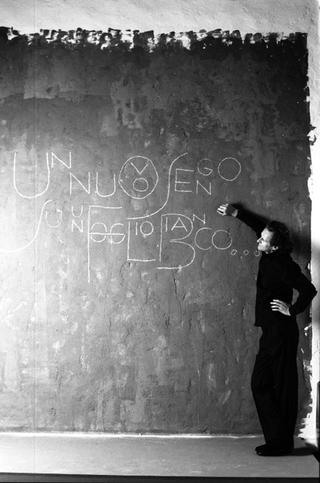 UN NUOVO SEGNO
SU UN FOGLIO BIANCO...